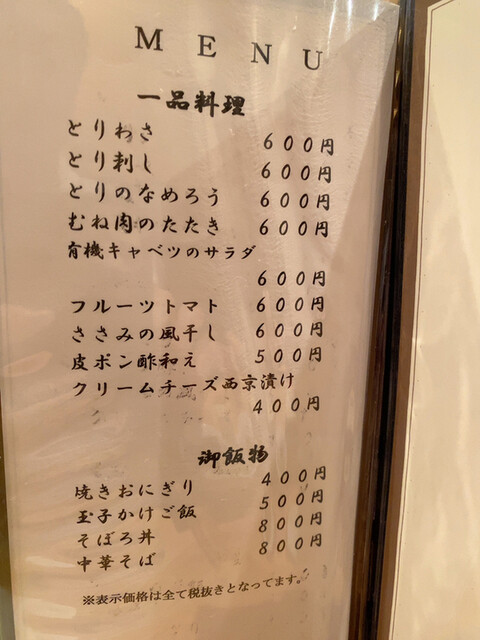 MENU
一品料理
とりわさ 600円
とり刺し 600円
とりのなめろう 600円
むね肉のたたき 600円
有機キャベツのサラダ
600円
フルーツトマト 600円
ささみの風干し 600円
皮ポン酢和え 500円
クリームチーズ西京漬け
400円
御飯物
焼きおにぎり 400円
玉子かけご飯 500円
そぼろ丼 800円
中華そば 800円
※表示価格は全て税抜きとなってます。